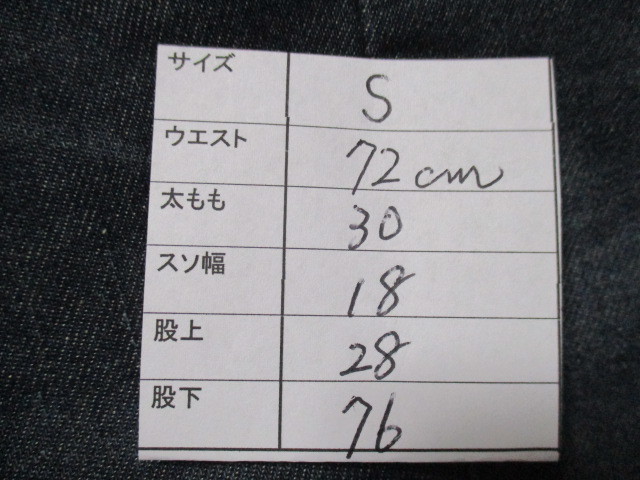 サイズ S
ウエスト 72cm
太もも 30
スソ幅 18
股上 28
股下 76